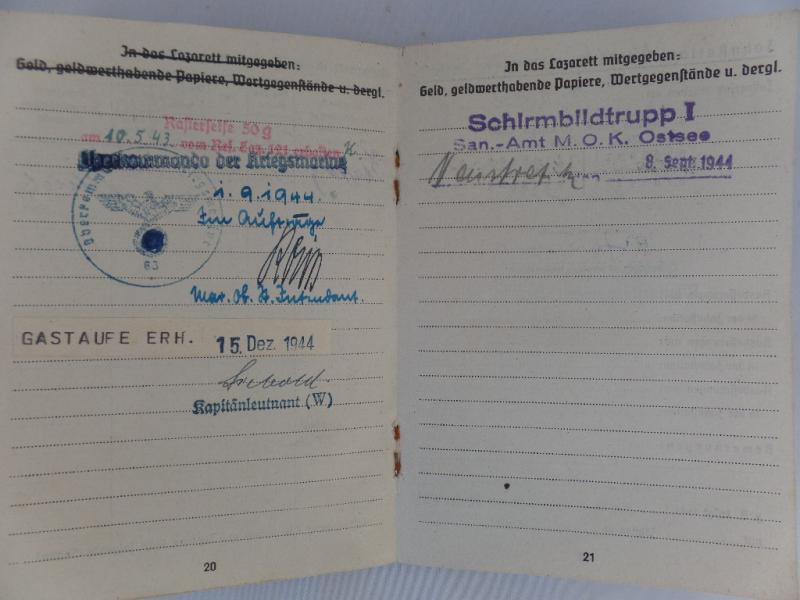 In das Lazarett mitgegeben:
Geld, geldwerthabende Papiere, Wertgegenstände u. dergl.
Rasierseife 50 g
am 10.5.43 vom Res. Laz. erhalten
Oberkommando der Kriegsmarine
1.9.1944.
Im Auftrage
63
Mar. Ob. Intendant.
GASTAUFE ERH. 15. Dez. 1944
Kapitänleutnant (W)
20
In das Lazarett mitgegeben:
Geld, geldwerthabende Papiere, Wertgegenstände u. dergl.
Schirmbildtrupp I
San.-Amt M.O.K. Ostsee
8. Sept. 1944
21